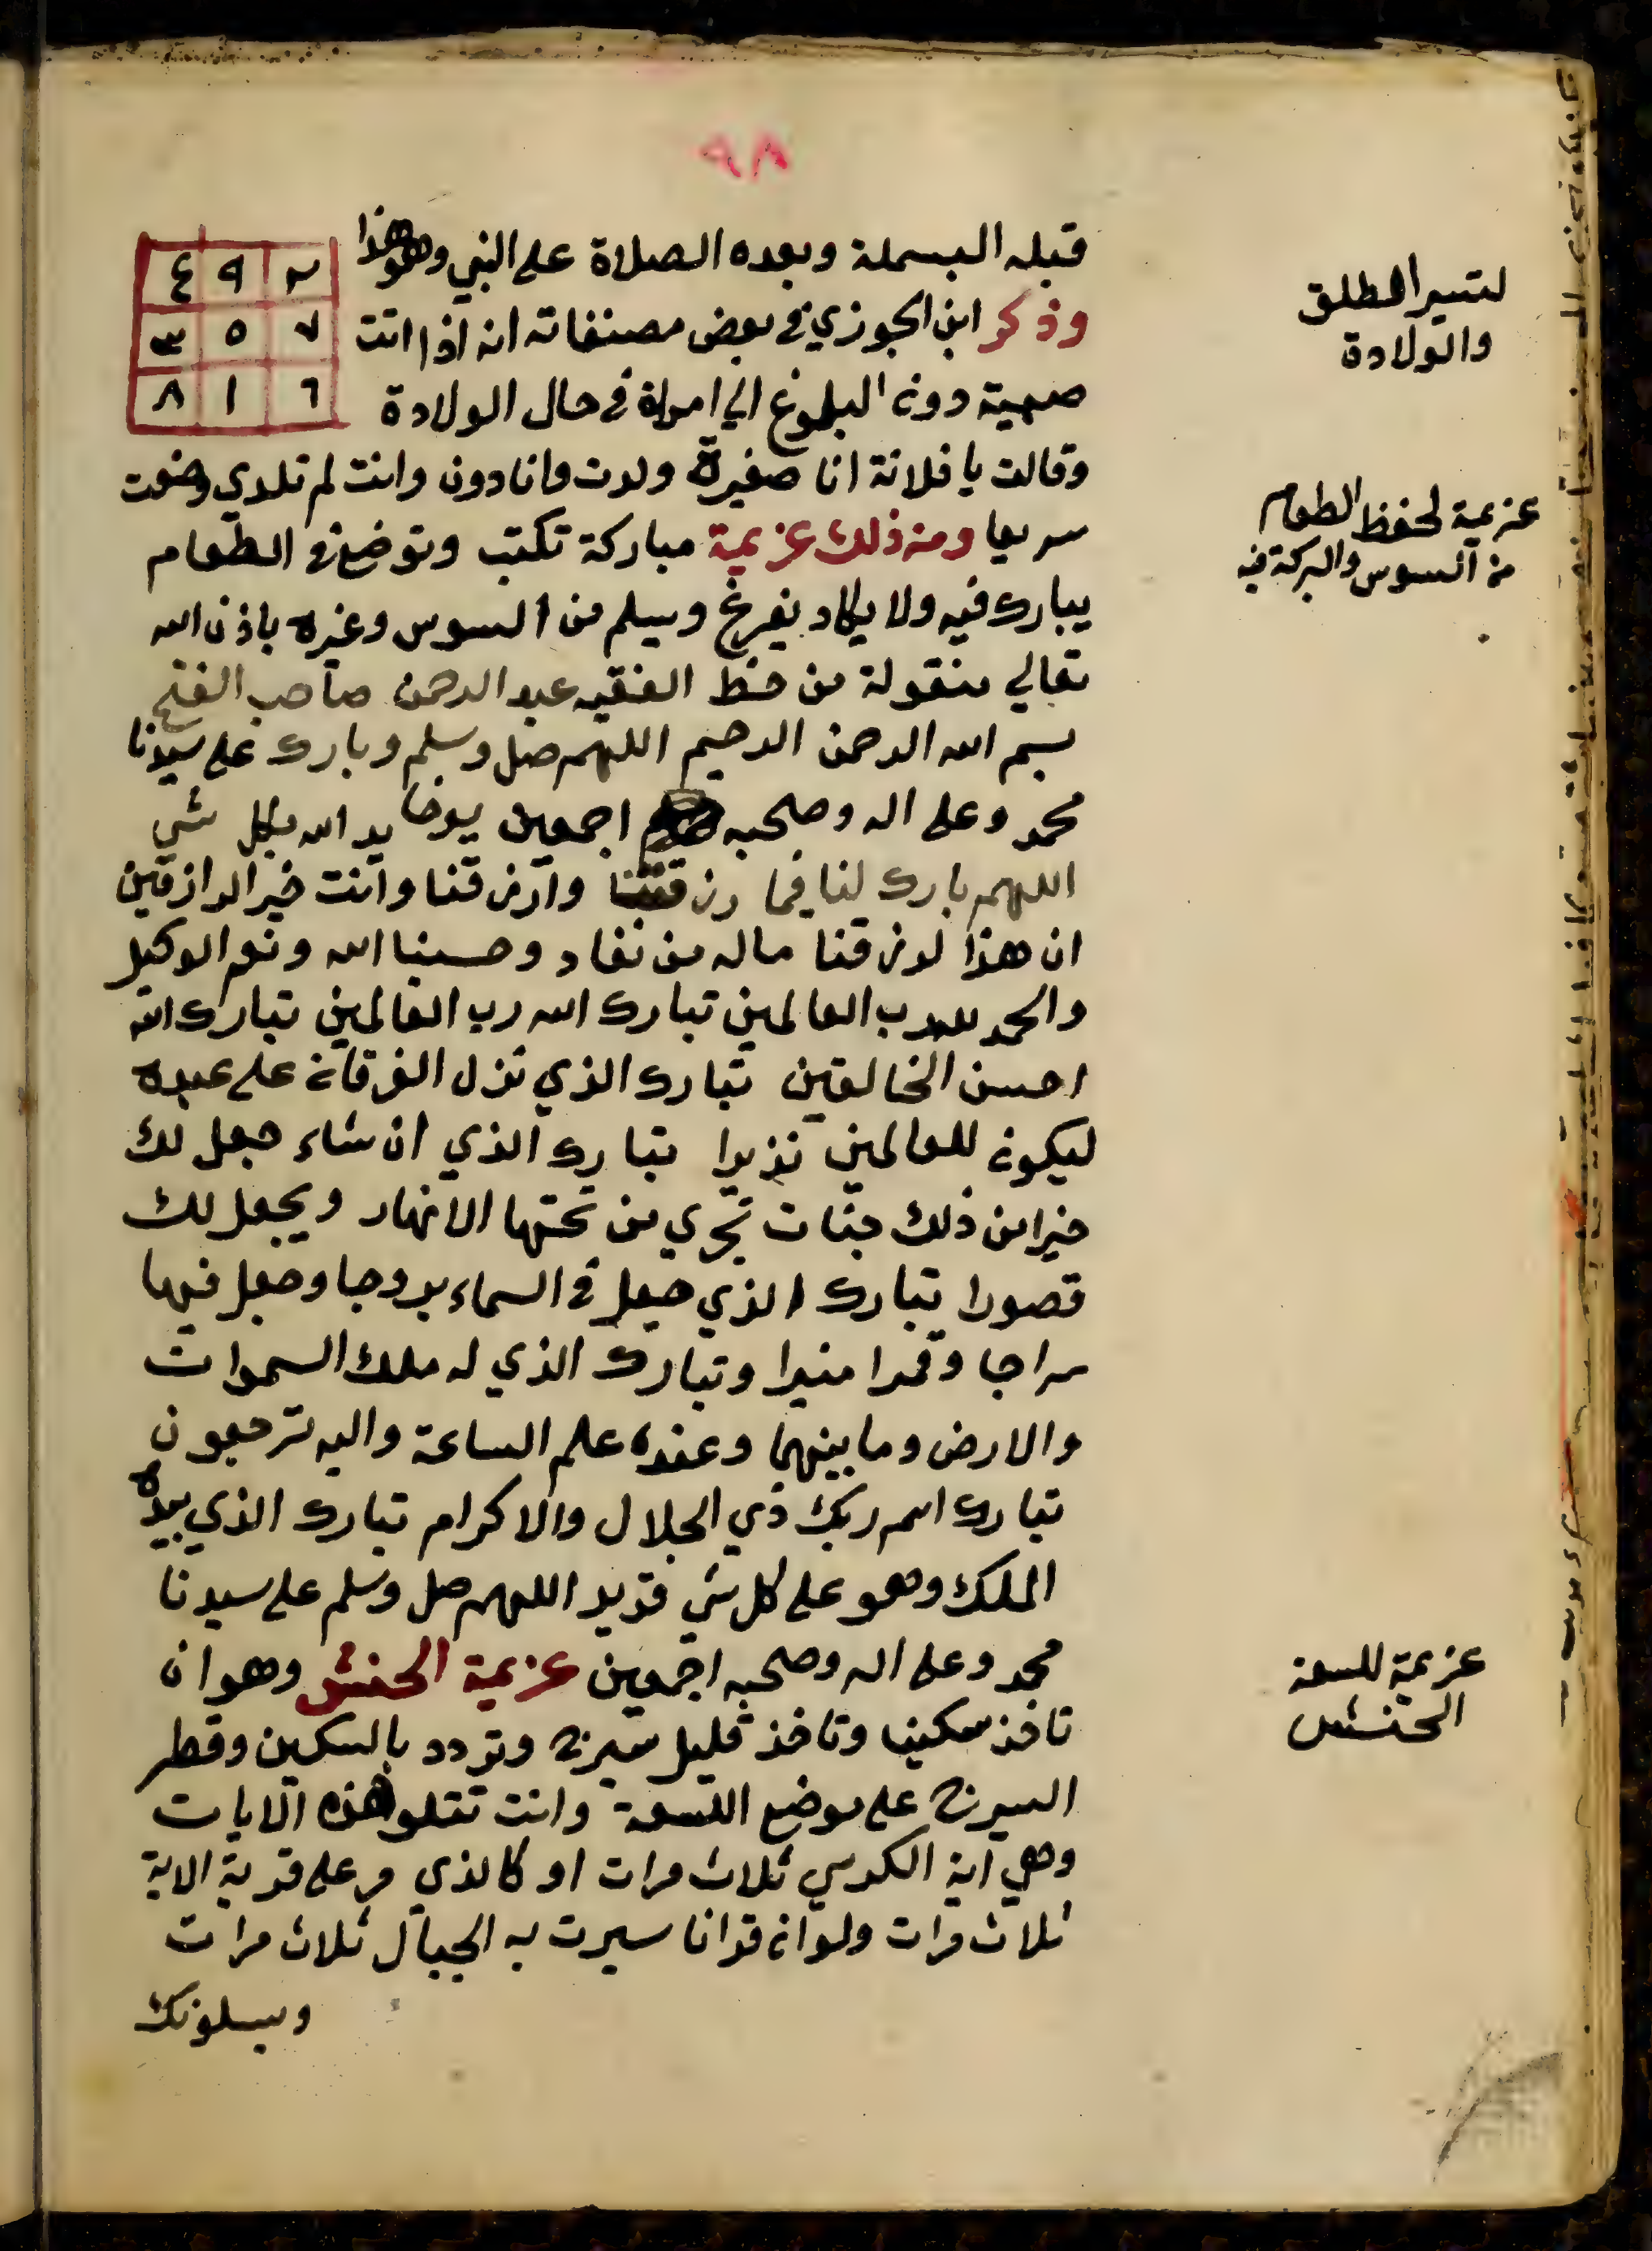 ٩٨
قبله البسملة وبعده الصلاة على النبي وهو هذا
٤ ٩ ٢
٣ ٥ ٧
٨ ١ ٦
وذكر ابن الجوزي في بعض مصنفاته انه اذا اتت
صبية دون البلوغ الي امراة في حال الولادة
وقالت يا فلانة انا صغيرة ولدت وانا دون وانت لم تلدي وضعت
سريعا ومن ذلك عزيمة مباركة تكتب وتوضع في الطعام
يبارك فيه ولا يكاد يفرغ ويسلم من السوس وغيره باذن الله
تعالي منقولة من خط الفقيه عبد الرحمن صاحب الفتح
بسم الله الرحمن الرحيم اللهم صل وسلم وبارك على سيدنا
محمد وعلى اله وصحبه اجمعين الله بكل شي
اللهم بارك لنا فيما رزقتنا وارزقنا وانت خير الرازقين
ان هذا لرزقنا ماله من نفاد وحسبنا الله ونعم الوكيل
والحمد لله رب العالمين تبارك الله رب العالمين تبارك الله
احسن الخالقين تبارك الذي نزل الفرقان على عبده
ليكون للعالمين نذيرا تبارك الذي ان شاء جعل لك
خيرا من ذلك جنات تجري من تحتها الانهار ويجعل لك
قصورا تبارك الذي جعل في السماء بروجا وجعل فيها
سراجا وقمرا منيرا وتبارك الذي له ملك السموات
والارض وما بينهما وعنده علم الساعة واليه ترجعون
تبارك اسم ربك ذي الجلال والاكرام تبارك الذي بيده
الملك وهو على كل شي قدير اللهم صل وسلم على سيدنا
محمد وعلى اله وصحبه اجمعين عزيمة الحنش وهو ان
تاخذ سكينا وتاخذ قليل سيرج وتردد بالسكين وقطر
السيرج على موضع اللسعة وانت تتلو هذه الايات
وهي اية الكرسي ثلاث مرات او كالذي مر على قرية الاية
ثلاث مرات ولو ان قرانا سيرت به الجبال ثلاث مرات
ويسلونك
لتيسير الطلق
والولادة
عزيمة لحفظ الطعام
من السوس والبركة فيه
عزيمة للسعة
الحنش